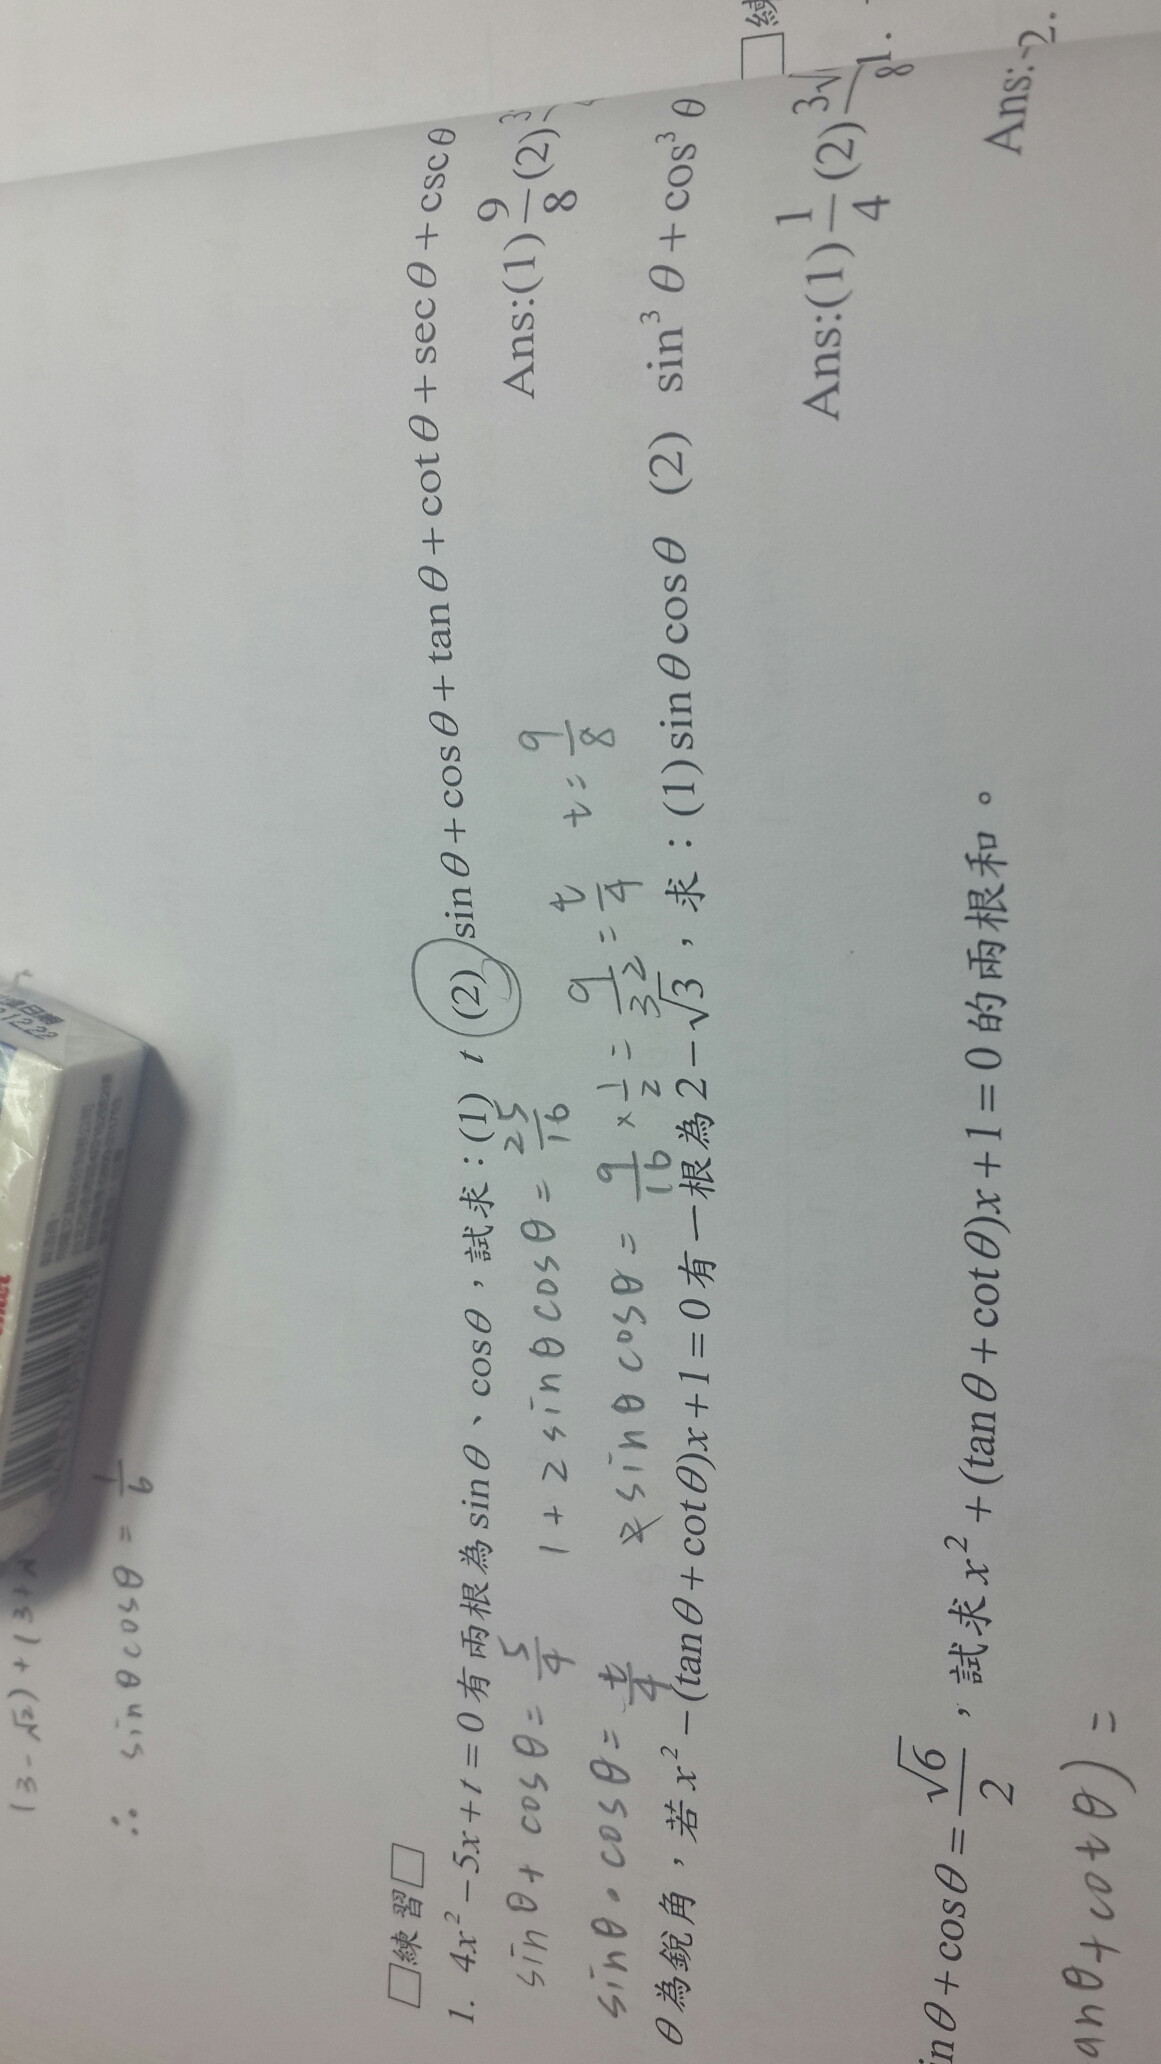 (3-√2)+(3+
∴ sinθcosθ = 1/6
□練習□
1. 4x²-5x+t=0有兩根為sinθ、cosθ，試求：(1) t (2) sinθ+cosθ+tanθ+cotθ+secθ+cscθ
Ans:(1) 9/8 (2) 3
sinθ+cosθ= 5/4 1+2sinθcosθ= 25/16
sinθ·cosθ= t/4 2sinθcosθ= 9/16 × 1/2 = 9/32 = t/4 t= 9/8
θ為銳角，若x²-(tanθ+cotθ)x+1=0有一根為2-√3，求：(1)sinθcosθ (2) sin³θ+cos³θ
□練
Ans:(1) 1/4 (2) 3√ /8
1.
inθ+cosθ= √6/2，試求x²+(tanθ+cotθ)x+1=0的兩根和。
Ans:
2.
anθ+cotθ) =